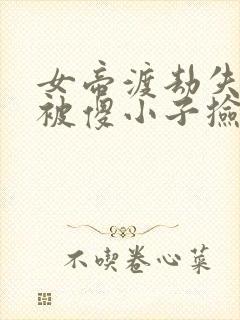 女帝渡劫失
被傻小子捡
不喫卷心菜